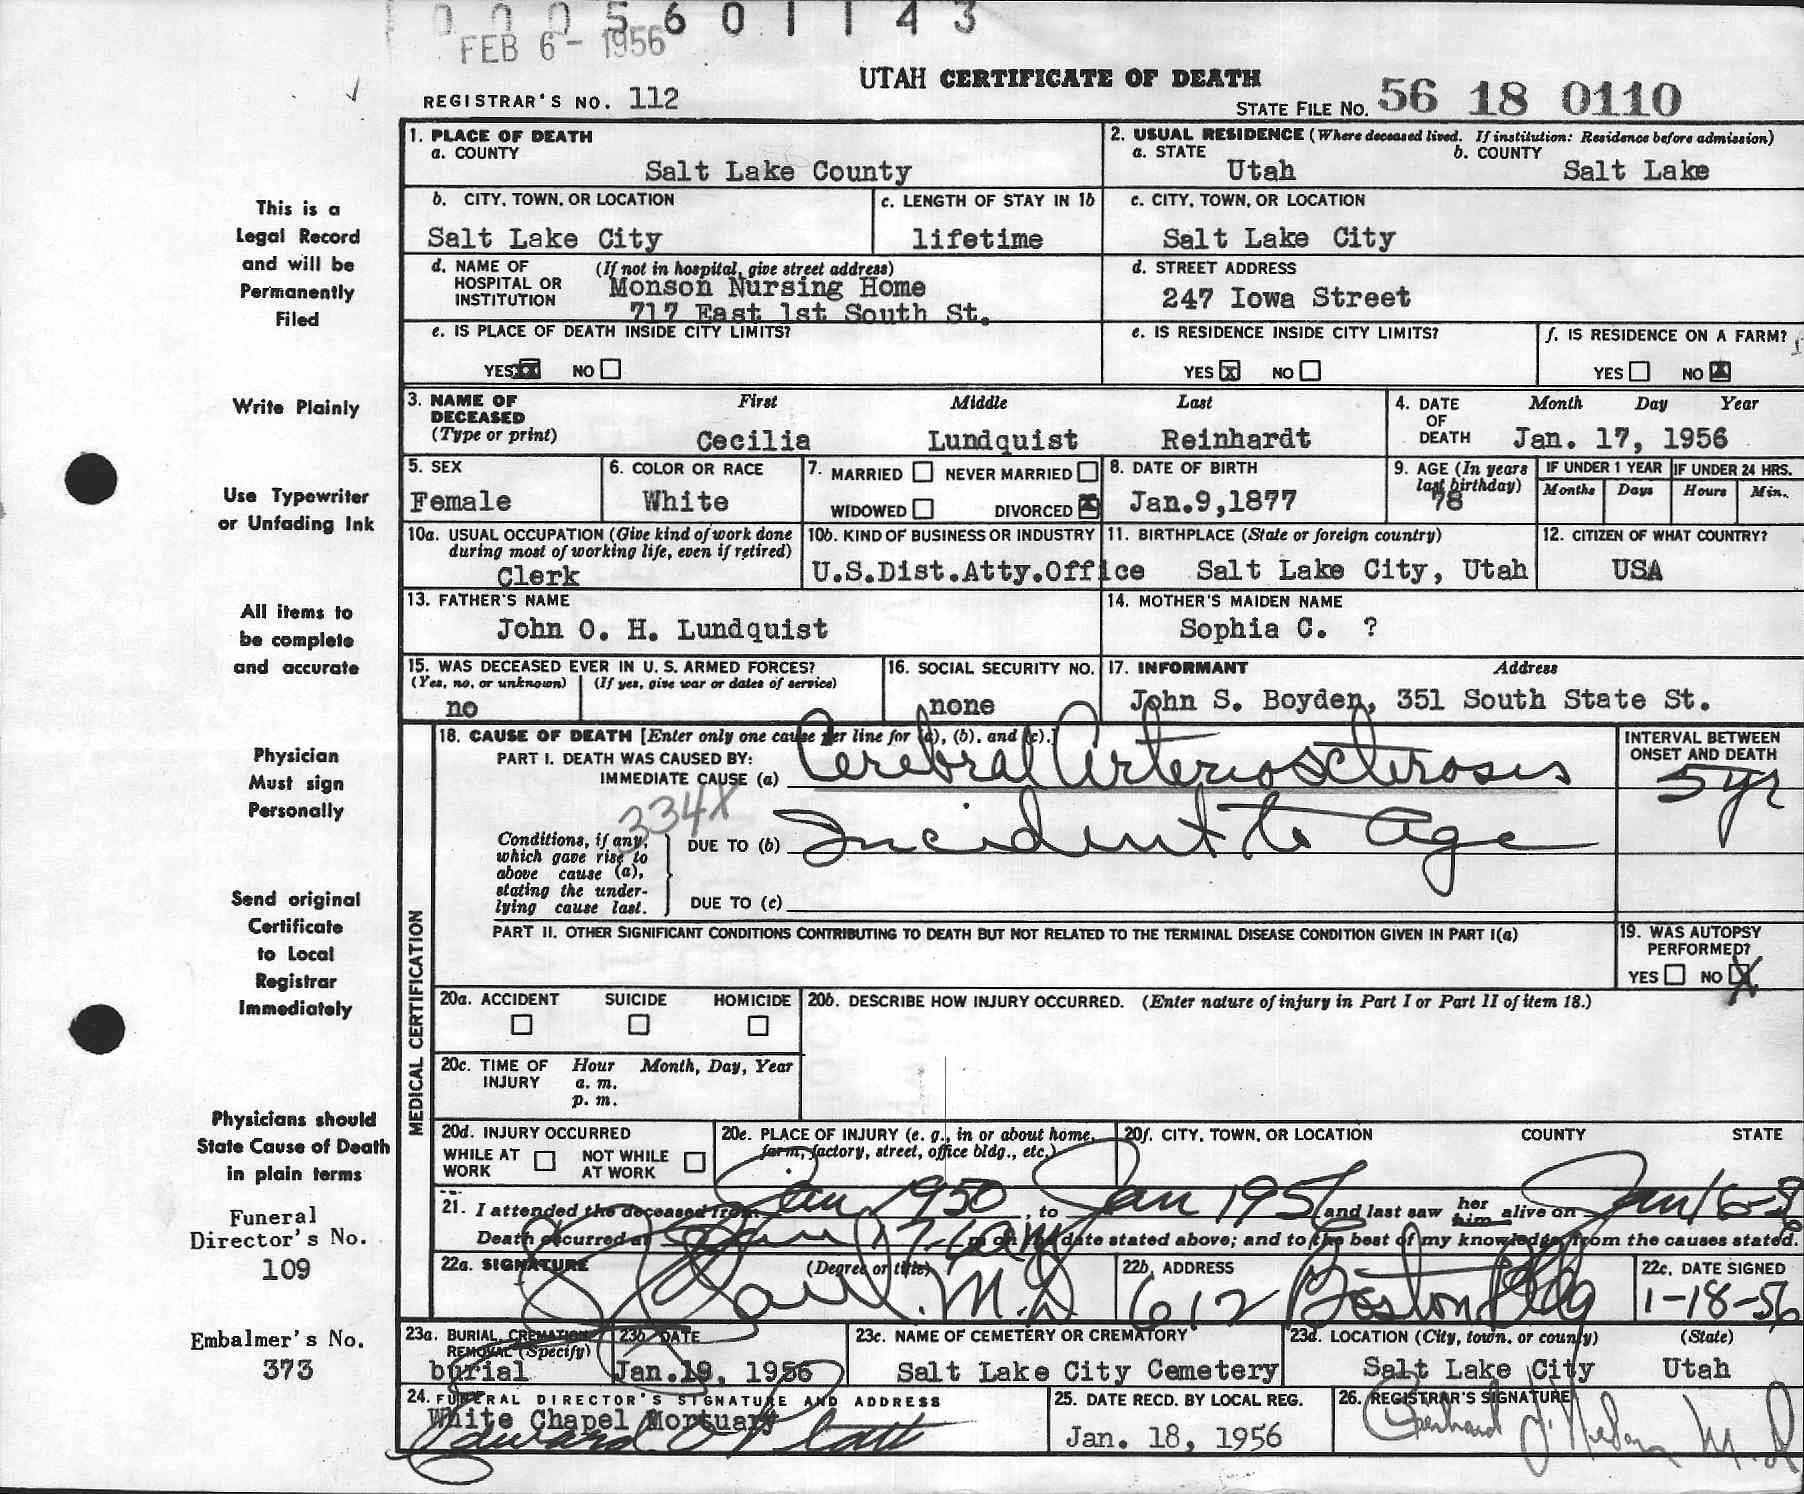 0005601143
FEB 6 - 1956
UTAH CERTIFICATE OF DEATH
REGISTRAR'S NO. 112
STATE FILE NO. 56 18 0110
This is a
Legal Record
and will be
Permanently
Filed
Write Plainly
Use Typewriter
or Unfading Ink
All items to
be complete
and accurate
Physician
Must sign
Personally
Send original
Certificate
to Local
Registrar
Immediately
Physicians should
State Cause of Death
in plain terms
Funeral
Director's No.
109
Embalmer's No.
373
1. PLACE OF DEATH
a. COUNTY
Salt Lake County
2. USUAL RESIDENCE (Where deceased lived. If institution: Residence before admission)
a. STATE
Utah
b. COUNTY
Salt Lake
b. CITY, TOWN, OR LOCATION
Salt Lake City
c. LENGTH OF STAY IN 1b
lifetime
c. CITY, TOWN, OR LOCATION
Salt Lake City
d. NAME OF HOSPITAL OR INSTITUTION
(If not in hospital, give street address)
Monson Nursing Home
717 East 1st South St.
d. STREET ADDRESS
247 Iowa Street
e. IS PLACE OF DEATH INSIDE CITY LIMITS?
YES NO
e. IS RESIDENCE INSIDE CITY LIMITS?
YES x NO
f. IS RESIDENCE ON A FARM?
YES NO
3. NAME OF DECEASED
(Type or print)
First Middle Last
Cecilia Lundquist Reinhardt
4. DATE OF DEATH
Month Day Year
Jan. 17, 1956
5. SEX
Female
6. COLOR OR RACE
White
7. MARRIED NEVER MARRIED
WIDOWED DIVORCED
8. DATE OF BIRTH
Jan.9,1877
9. AGE (In years last birthday)
78
IF UNDER 1 YEAR
Months Days
IF UNDER 24 HRS.
Hours Min.
10a. USUAL OCCUPATION (Give kind of work done
during most of working life, even if retired)
Clerk
10b. KIND OF BUSINESS OR INDUSTRY
U.S.Dist.Atty.Office
11. BIRTHPLACE (State or foreign country)
Salt Lake City, Utah
12. CITIZEN OF WHAT COUNTRY?
USA
13. FATHER'S NAME
John O. H. Lundquist
14. MOTHER'S MAIDEN NAME
Sophia C. ?
15. WAS DECEASED EVER IN U. S. ARMED FORCES?
(Yes, no, or unknown) (If yes, give war or dates of service)
no
16. SOCIAL SECURITY NO.
none
17. INFORMANT Address
John S. Boyden, 351 South State St.
MEDICAL CERTIFICATION
18. CAUSE OF DEATH [Enter only one cause per line for (a), (b), and (c).]
PART I. DEATH WAS CAUSED BY:
IMMEDIATE CAUSE (a) Cerebral Arteriosclerosis
INTERVAL BETWEEN
ONSET AND DEATH
5 yr
334X
Conditions, if any,
which gave rise to
above cause (a),
stating the under-
lying cause last.
DUE TO (b) Incident to Age
DUE TO (c)
PART II. OTHER SIGNIFICANT CONDITIONS CONTRIBUTING TO DEATH BUT NOT RELATED TO THE TERMINAL DISEASE CONDITION GIVEN IN PART I(a)
19. WAS AUTOPSY
PERFORMED?
YES NO X
20a. ACCIDENT SUICIDE HOMICIDE
20b. DESCRIBE HOW INJURY OCCURRED. (Enter nature of injury in Part I or Part II of item 18.)
20c. TIME OF INJURY
Hour Month, Day, Year
a. m.
p. m.
20d. INJURY OCCURRED
WHILE AT WORK NOT WHILE AT WORK
20e. PLACE OF INJURY (e. g., in or about home,
farm, factory, street, office bldg., etc.)
20f. CITY, TOWN, OR LOCATION COUNTY STATE
21. I attended the deceased from Jan 1950, to Jan 1956 and last saw her him alive on Jan 16-56
Death occurred at Jan 17- m on the date stated above; and to the best of my knowledge, from the causes stated.
22a. SIGNATURE (Degree or title)
M.D
22b. ADDRESS
612 Boston Bldg
22c. DATE SIGNED
1-18-56
23a. BURIAL, CREMATION,
REMOVAL (Specify)
burial
23b. DATE
Jan.19, 1956
23c. NAME OF CEMETERY OR CREMATORY
Salt Lake City Cemetery
23d. LOCATION (City, town, or county) (State)
Salt Lake City Utah
24. FUNERAL DIRECTOR'S SIGNATURE AND ADDRESS
White Chapel Mortuary
25. DATE RECD. BY LOCAL REG.
Jan. 18, 1956
26. REGISTRAR'S SIGNATURE
M.D